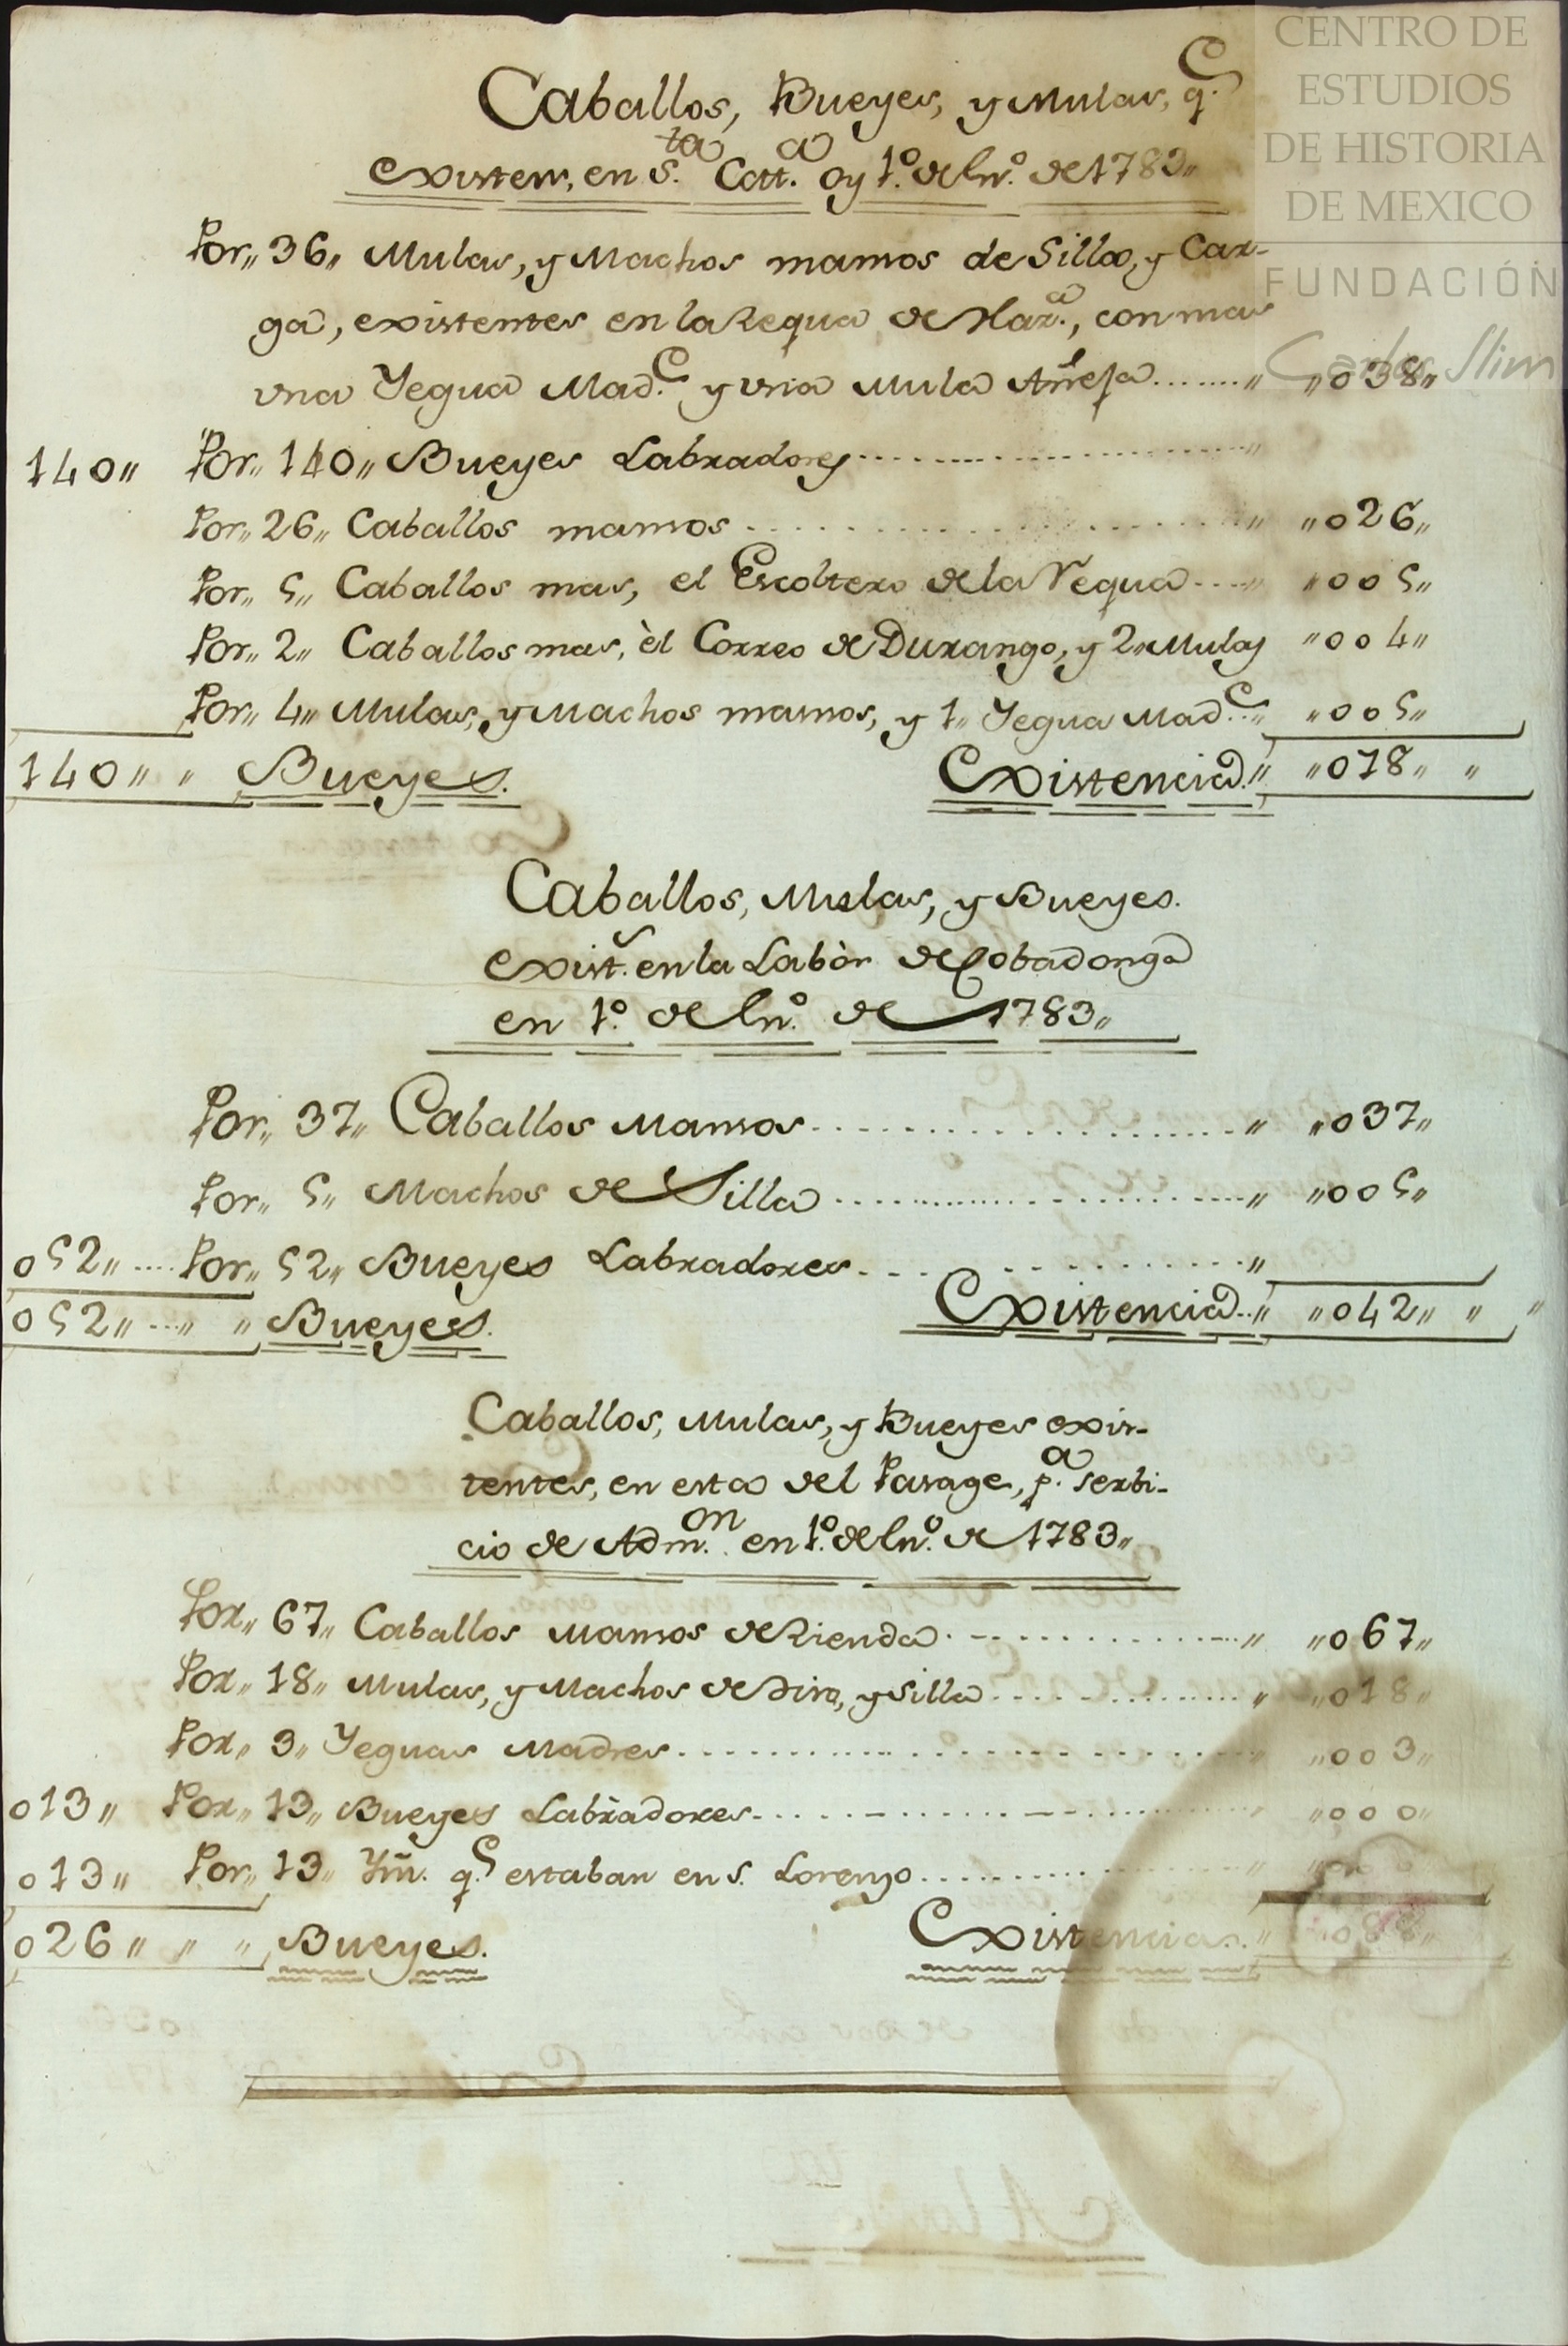 CENTRO DE
ESTUDIOS
DE HISTORIA
DE MEXICO
FUNDACIÓN
Carlos Slim
Caballos, Bueyes, y Mulas, q.e
existen, en S.ta Catt.a oy 1.º de En.º de 1783„
Por„ 36„ Mulas, y Machos mansos de Silla, y Car-
ga, existentes en la Requa de Haz.a, con mas
vna Yegua Mad.e y vna Mula Añeja ........ „ „038„
140„ Por„ 140„ Bueyes Labradores ........ „
Por„ 26„ Caballos mansos ........ „ „026„
Por„ 5„ Caballos mas, el Escoltero de la Requa .... „ „005„
Por„ 2„ Caballos mas, èl Correo de Durango, y 2„ Mulas „004„
Por„ 4„ Mulas, y Machos mansos, y 1„ Yegua Mad.e .. „ „005„
140„ „ Bueyes. Existencia. „ „078„ „
Caballos, Mulas, y Bueyes.
exist.s en la Labòr de Cobadonga
en 1.º de En.º de 1783„
Por„ 37„ Caballos Mansos ........ „ „037„
Por„ 5„ Machos de Silla ........ „ „005„
052„ .... Por„ 52„ Bueyes Labradores ........ „
052„ ... „ „ Bueyes. Existencia .. „ „042„ „ „
Caballos, Mulas, y Bueyes exis-
tentes, en esta del Pasage, p.a serbi-
cio de Adm.on en 1.º de En.º de 1783„
Por„ 67„ Caballos Mansos de Rienda ........ „ „067„
Por„ 18„ Mulas, y Machos de Tiro, y Silla ........ „ „018„
Por„ 3„ Yeguas Madres ........ „ „003„
013„ Por„ 13„ Bueyes Labradores ........ „ „000„
013„ Por„ 13„ Ym. q.e estaban en S. Lorenzo ........ „
026„ „ „ Bueyes. Existencias. „ „088„